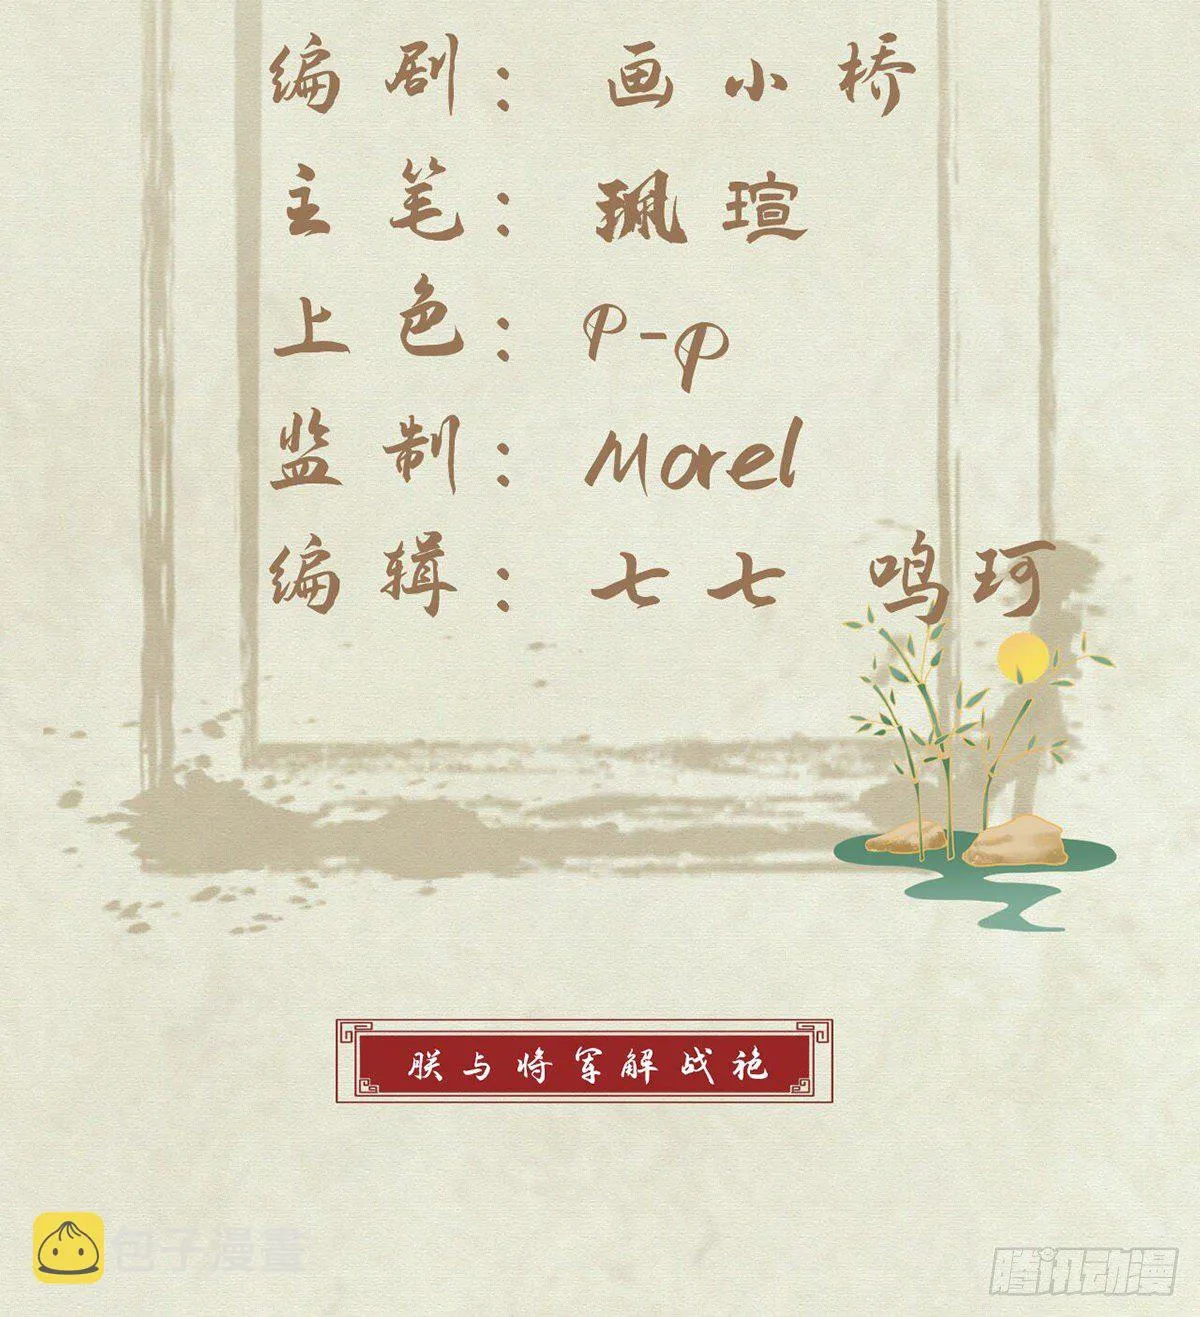 编剧： 画小桥
主笔： 珮瑄
上色： P-P
监制： Morel
编辑： 七七 鸣珂
朕与将军解战袍
包子漫畫
腾讯动漫